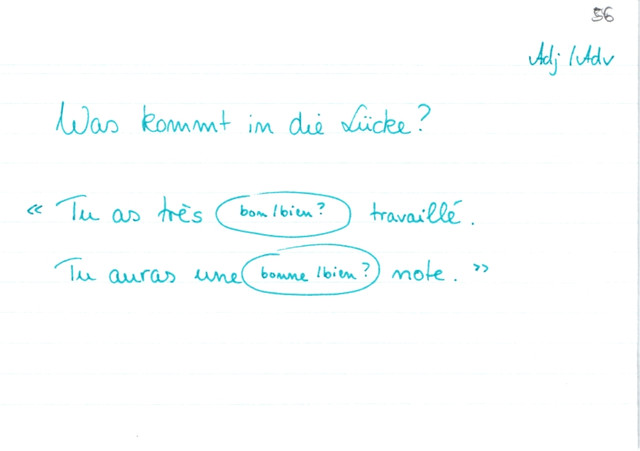 56
Adj / Adv
Was kommt in die Lücke?
« Tu as très bon/bien? travaillé.
Tu auras une bonne/bien? note. »